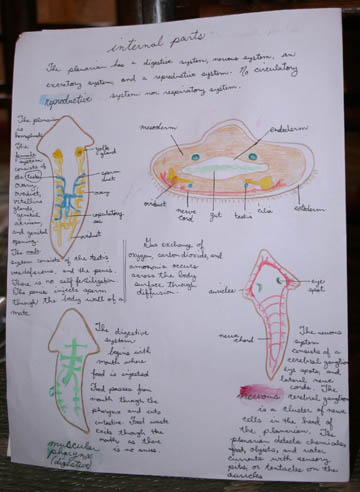 internal parts
The planarian has a digestive system, nervous system, an
excretory system, and a reproductive system. No circulatory
system nor respiratory system.
reproductive
The planarian
is
The female
system
consists of
the
ovary,
oviduct,
vitelline
glands,
genital
atrium,
and genital
opening.
The male
system consists of the testes,
vas deferens, and the penis.
There is no self-fertilization.
The penis injects sperm
through the body wall of a
mate.
yolk
gland
sperm
duct
ovary
copulatory sac
oviduct
mesoderm
endoderm
oviduct
nerve
cord
gut
testis
cilia
ectoderm
Gas exchange of
oxygen, carbon dioxide, and
ammonia occurs
across the body
surface through
diffusion.
auricles
eye
spot
nerve
chord
The nervous
system
consists of a
cerebral ganglion,
eye spots, and
lateral nerve
cords. The
cerebral ganglion
nervous
is a cluster of nerve
cells in the head of
the planarian. The
planarian detects chemicals,
food, objects, and water
currents with sensory
pits, or tentacles on the
auricles
The digestive
system
begins with
mouth where
food is ingested
Food passes from
mouth through the
pharynx and into
intestine. Food waste
exits through the
mouth, as there
is no anus.
muscular
pharynx
(digestive)